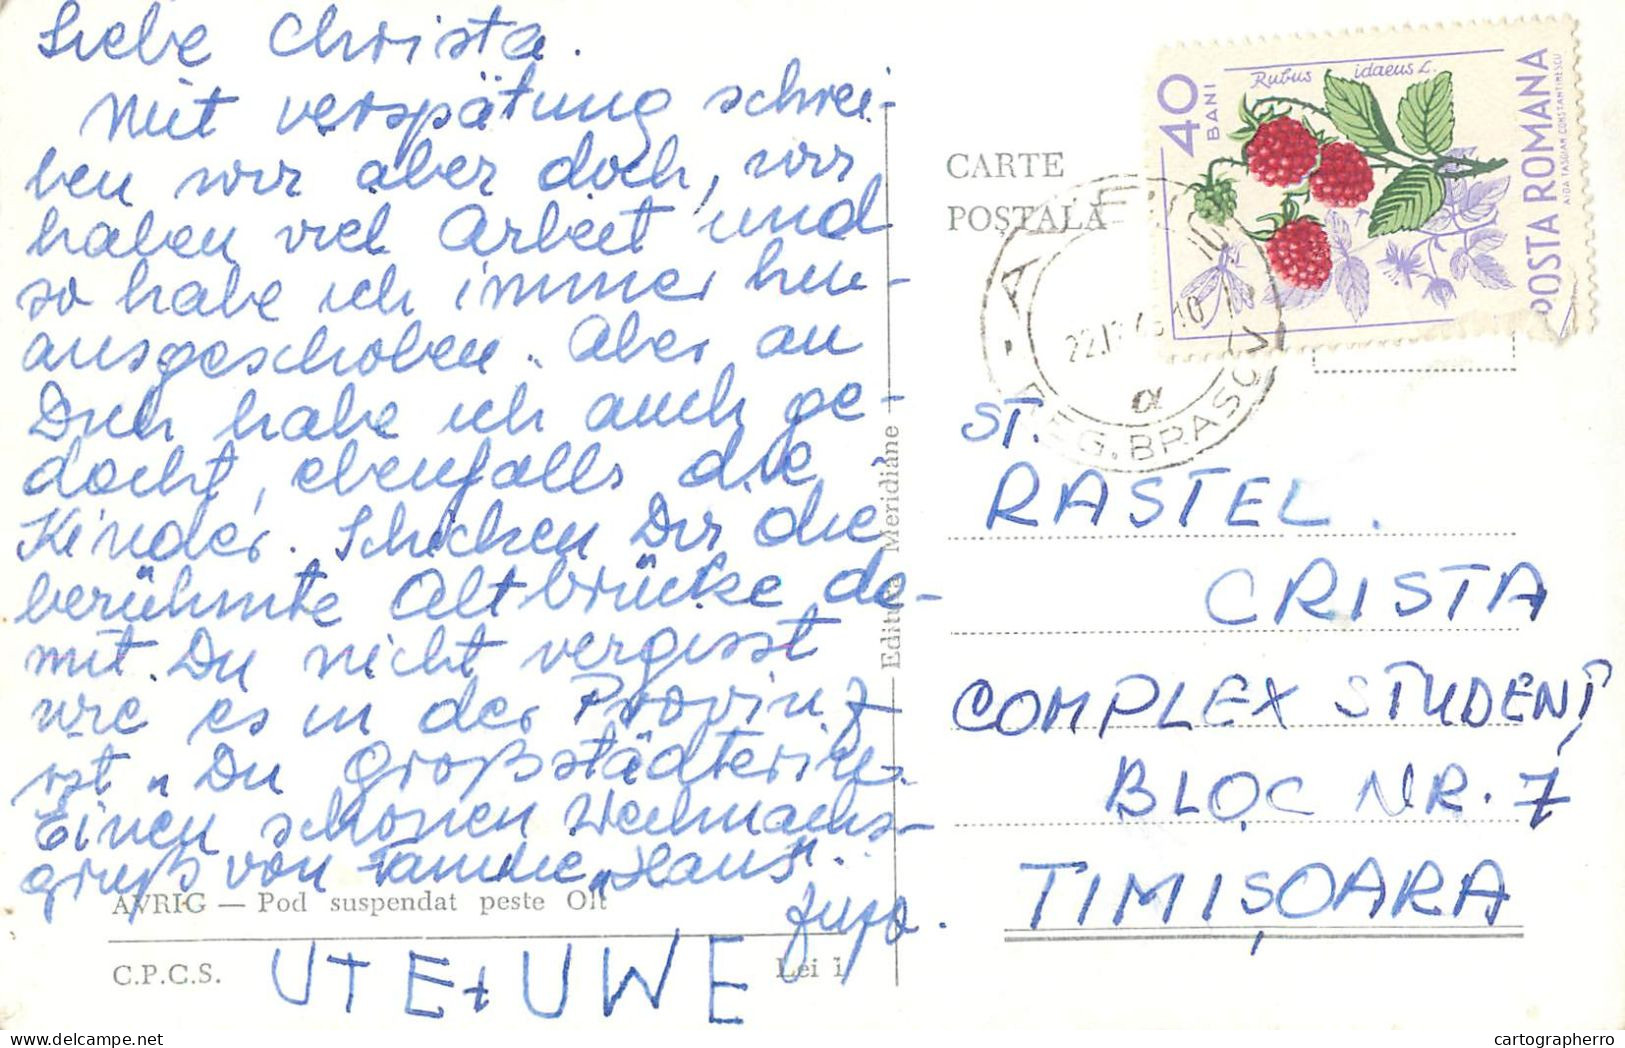 Liebe Christa.
Mit verspätung schrei-
ben wir aber doch, wir
haben viel Arbeit und
so habe ich immer hin-
ausgeschoben. Aber an
Dich habe ich auch ge-
dacht, ebenfalls die
Kinder. Schicken Dir die
berühmte Altbrücke da-
mit Du nicht vergisst
wie es in der Provinz
ist. Du Großstädterin.
Einen schönen Weihnachs-
gruß von Familie "Haus".
UTE + UWE
AVRIG — Pod suspendat peste Olt
C.P.C.S.
Lei 1
Editura Meridiane
CARTE
POȘTALĂ
40
BANI
Rubus idaeus L.
POSTA ROMANA
AIDA TASGIAN CONSTANTINESCU
REG. BRASOV
ST.
RASTEL.
CRISTA
COMPLEX STUDENȚ
BLOC NR. 7
TIMIȘOARA
cartographerro